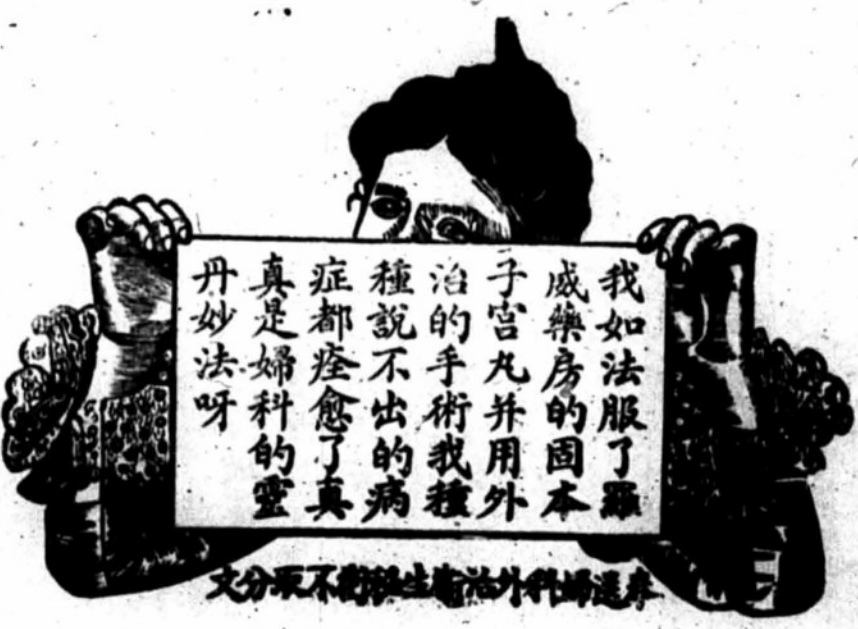 我如法服了羅
威藥房的固本
子宮丸并用外
治的手術我種
種說不出的病
症都痊愈了真
真是婦科的靈
丹妙法呀
奉送婦科外治衛生新術不取分文